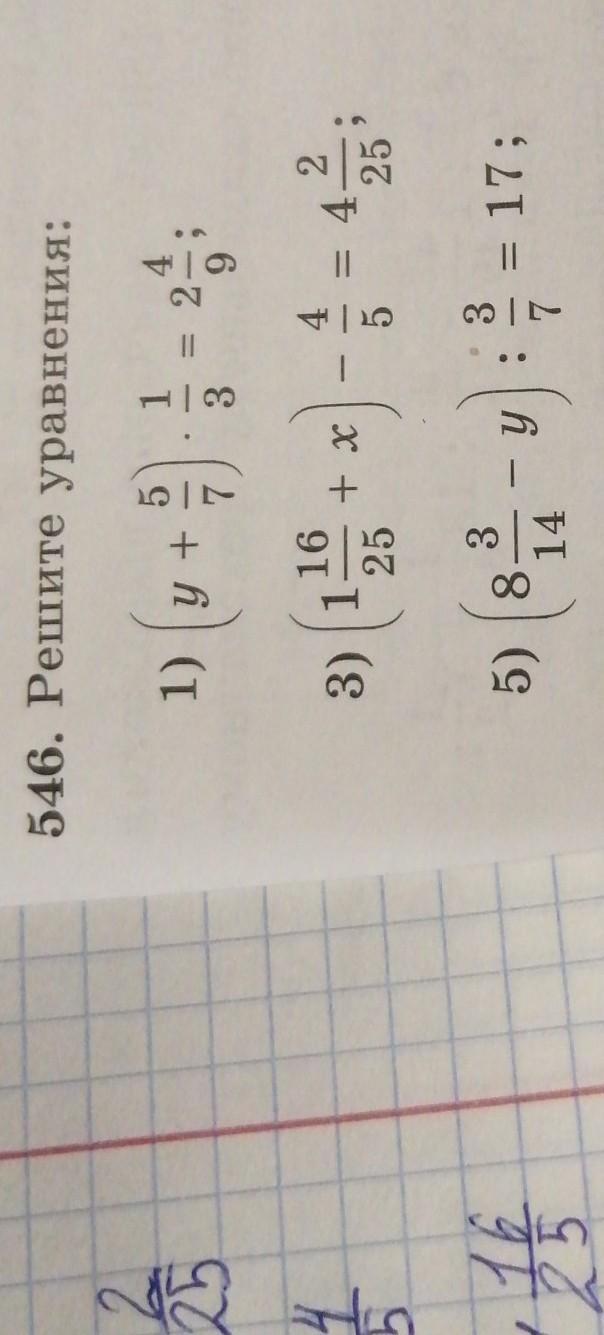 546. Решите уравнения:
1) (y + 5/7) · 1/3 = 2 4/9;
3) (1 16/25 + x) − 4/5 = 4 2/25;
5) (8 3/14 − y) : 3/7 = 17;
2/25
4/5
16/25